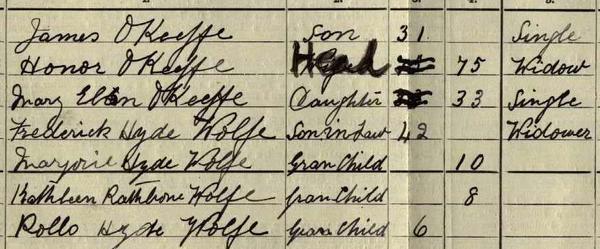 James O'Keeffe Son 31 Single
Honor O'Keeffe Head 75 Widow
Mary Ellen O'Keeffe Daughter 33 Single
Frederick Hyde Wolfe Son in Law 42 Widower
Marjorie Hyde Wolfe Gran Child 10
Kathleen Rathbone Wolfe Gran Child 8
Rollo Hyde Wolfe Gran Child 6